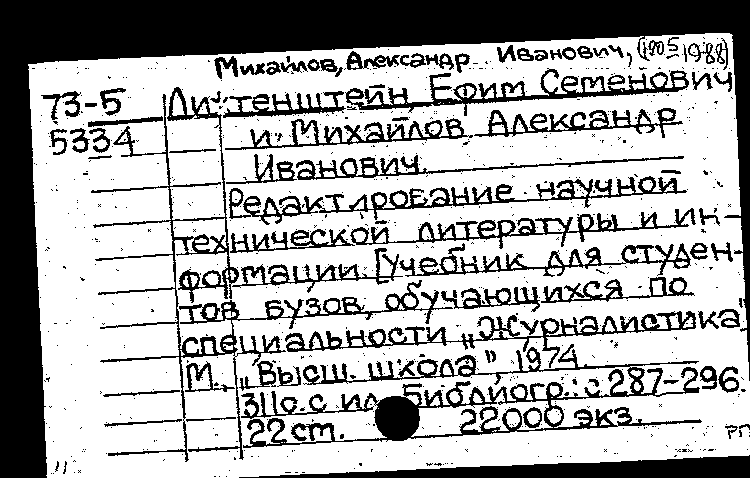 Михайлов, Александр Иванович, (1905 1988)
73-5 Лихтенштейн, Ефим Семенович
5334 и Михайлов Александр
Иванович.
Редактирование научной
технической литературы и ин-
формации. [Учебник для студен-
тов вузов, обучающихся по
специальности „Журналистика"
М., „Высш. школа", 1974.
311 с. с ил. Библиогр.: с 287-296.
22 см. 22000 экз.
РП